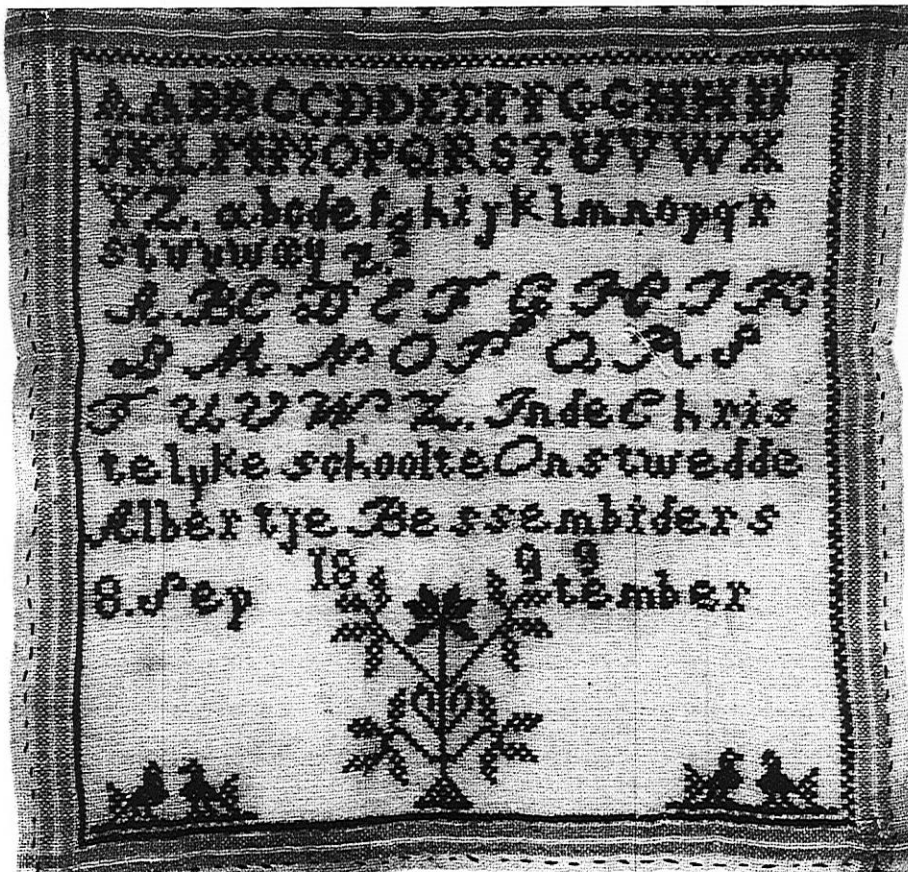 AABBCCDDEEFFGGHHIJ
JKLMNOPQRSTUVWX
YZ. abcdefghijklmnopqr
stuvwxyz.
A B C D E F G H I K
L M N O P Q R S
T U V W Z. In de Chris
telyke school te Onstwedde
Albertje Bessembiders
18 93
8. Sep tember